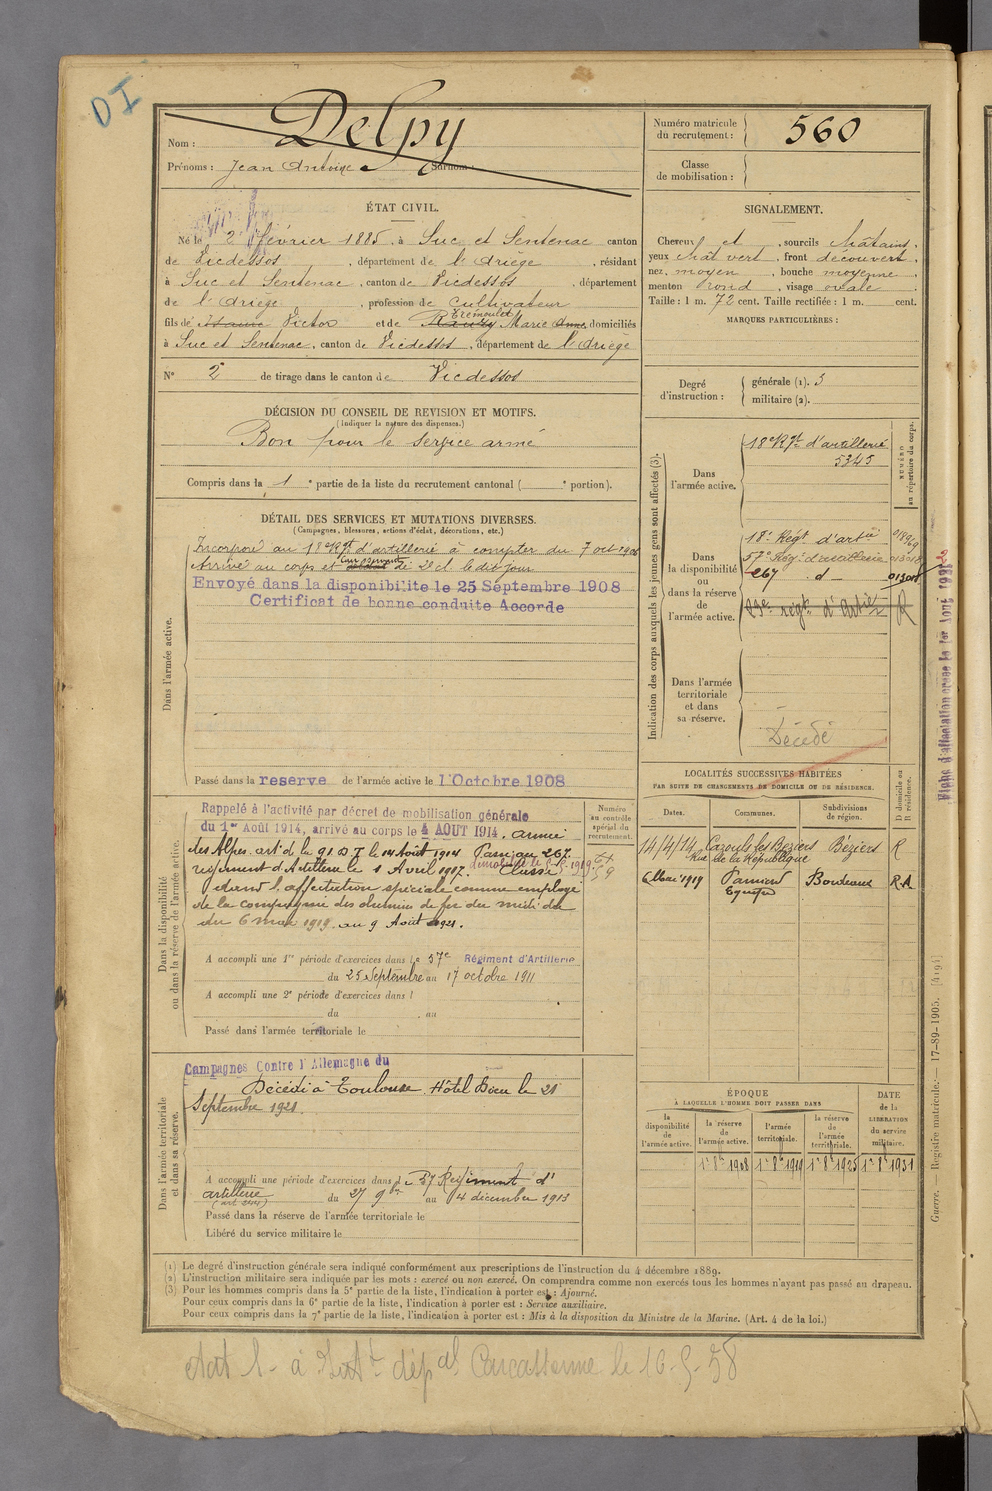 DI
Nom : Delpy
Prénoms : Jean Antoine Surnom :
Numéro matricule du recrutement : 560
Classe de mobilisation :
ÉTAT CIVIL.
Né le 2 février 1885, à Suc et Sentenac canton
de Vicdessos, département de l'Ariège, résidant
à Suc et Sentenac, canton de Vicdessos, département
de l'Ariège, profession de cultivateur
fils de Victor et de Tremoulet Marie Anne, domiciliés
à Suc et Sentenac, canton de Vicdessos, département de l'Ariège
N° 2 de tirage dans le canton de Vicdessos
SIGNALEMENT.
Cheveux et , sourcils châtains,
yeux chât vert, front découvert,
nez moyen, bouche moyenne,
menton rond, visage ovale
Taille : 1 m. 72 cent. Taille rectifiée : 1 m. cent.
MARQUES PARTICULIÈRES :
Degré d'instruction : générale (1). 3
militaire (2).
DÉCISION DU CONSEIL DE REVISION ET MOTIFS.
(Indiquer la nature des dispenses.)
Bon pour le service armé
Compris dans la 1e partie de la liste du recrutement cantonal ( e portion).
DÉTAIL DES SERVICES ET MUTATIONS DIVERSES.
(Campagnes, blessures, actions d'éclat, décorations, etc.)
Dans l'armée active.
Incorporé au 18e Rgt d'artillerie à compter du 7 oct 1906
Arrivé au corps et de 2e cl. le dit jour
Envoyé dans la disponibilite le 25 Septembre 1908
Certificat de bonne conduite Accorde
Passé dans la reserve de l'armée active le 1 Octobre 1908
Indication des corps auxquels les jeunes gens sont affectés (3).
NUMÉRO au répertoire du corps.
Dans l'armée active.
18e Rgt d'artillerie
5345
Dans la disponibilité ou dans la réserve de l'armée active.
18e Régt d'artie
57e Rég. d'artillerie
267 d°
23e régt d'Artie R
Dans l'armée territoriale et dans sa réserve.
Décédé
LOCALITÉS SUCCESSIVES HABITÉES
PAR SUITE DE CHANGEMENTS DE DOMICILE OU DE RÉSIDENCE.
Dates. Communes. Subdivisions de région. D domicile ou R résidence.
14/4/14 Cazouls les Beziers Béziers R
Rue de la République
6 Mai 1919 Pamiers Bordeaux R.A
Dans la disponibilité ou dans la réserve de l'armée active.
Numéro au contrôle spécial du recrutement.
Rappelé à l'activité par décret de mobilisation générale
du 1er Août 1914, arrivé au corps le 4 AOUT 1914. armée
des Alpes. art de la 91 D T le 14 Août 1914 Passé au 267
régiment d'Artillerie le 1 Avril 1917. Classé
dans l'affectation spéciale comme employé
de la compagnie des chemins de fer du midi du
du 6 mai 1919 au 9 Août 1921.
A accompli une 1re période d'exercices dans le 57e Régiment d'Artillerie
du 25 Septembre au 17 octobre 1911
A accompli une 2e période d'exercices dans l
du au
Passé dans l'armée territoriale le
Dans l'armée territoriale et dans sa réserve.
Campagnes Contre l'Allemagne du
Décédé à Toulouse Hôtel Dieu le 21
Septembre 1921.
A accompli une période d'exercices dans le 57 Régiment d'
artillerie du 27 9bre au 4 décembre 1913
Passé dans la réserve de l'armée territoriale le
Libéré du service militaire le
ÉPOQUE
À LAQUELLE L'HOMME DOIT PASSER DANS
la disponibilité de l'armée active. la réserve de l'armée active. l'armée territoriale. la réserve de l'armée territoriale. DATE de la LIBÉRATION du service militaire.
1er 8bre 1908 1er 8bre 1919 1er 8bre 1925 1er 8bre 1931
(1) Le degré d'instruction générale sera indiqué conformément aux prescriptions de l'instruction du 4 décembre 1889.
(2) L'instruction militaire sera indiquée par les mots : exercé ou non exercé. On comprendra comme non exercés tous les hommes n'ayant pas passé au drapeau.
(3) Pour les hommes compris dans la 5e partie de la liste, l'indication à porter est : Ajourné.
Pour ceux compris dans la 6e partie de la liste, l'indication à porter est : Service auxiliaire.
Pour ceux compris dans la 7e partie de la liste, l'indication à porter est : Mis à la disposition du Ministre de la Marine. (Art. 4 de la loi.)
Guerre. — Registre matricule. — 17-89-1905. [4194]
Carcassonne le 16-5-58